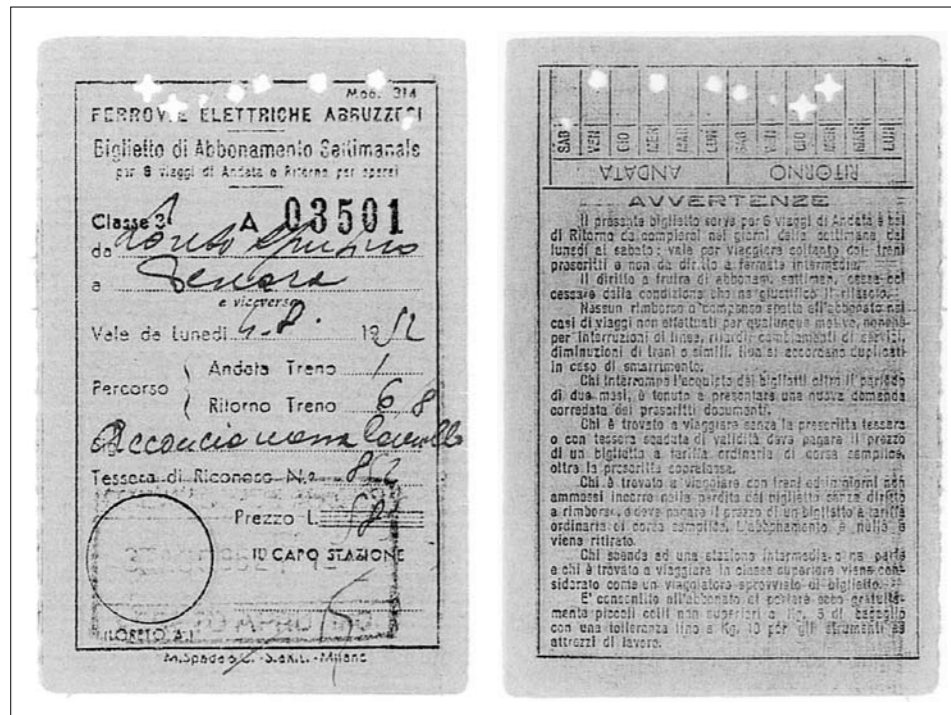 Mod. 314
FERROVIE ELETTRICHE ABRUZZESI
Biglietto di Abbonamento Settimanale
per 6 viaggi di Andata e Ritorno per operai
Classe 3ª A 03501
da Loreto Aprutino
a Pescara
e viceversa
Vale da Lunedì 4-8. 1952
Percorso
Andata Treno 1
Ritorno Treno 6 8
Tessera di Riconosc. N.°
Prezzo L.
IL CAPO STAZIONE
LORETO A.
M. Spada & C. - S.a.i.t. - Milano
SAB VEN GIO MER MAR LUN SAB VEN GIO MER MAR LUN
ANDATA RITORNO
AVVERTENZE
Il presente biglietto serve per 6 viaggi di Andata e 6
di Ritorno da compiersi nei giorni della settimana dal
lunedì al sabato; vale per viaggiare soltanto dai treni
prescritti e non da diritto a fermate intermedie.
Il diritto a fruire di abbonam. settiman. cessa col
cessare della condizione che ne giustificò il rilascio.
Nessun rimborso o compenso spetta all'abbonato nei
casi di viaggi non effettuati per qualunque motivo, nonchè
per interruzioni di linea, ritardi, cambiamenti di servizi,
diminuzioni di treni o simili. Non si accordano duplicati
in caso di smarrimento.
Chi interrompe l'acquisto dei biglietti oltre il periodo
di due mesi, è tenuto a presentare una nuova domanda
corredata dei prescritti documenti.
Chi è trovato a viaggiare senza la prescritta tessera
o con tessera scaduta di validità deve pagare il prezzo
di un biglietto a tariffa ordinaria di corsa semplice,
oltre la prescritta sopratassa.
Chi è trovato a viaggiare con treni ed in giorni non
ammessi incorre nella perdita del biglietto senza diritto
a rimborsi, e deve pagare il prezzo di un biglietto a tariffa
ordinaria di corsa semplice. L'abbonamento è nullo e
viene ritirato.
Chi scende ad una stazione intermedia o ne parte
e chi è trovato a viaggiare in classe superiore viene con-
siderato come un viaggiatore sprovvisto di biglietto.
E' consentito all'abbonato di portare seco gratuita-
mente piccoli colli non superiori a Kg. 5 di bagaglio
con una tolleranza fino a Kg. 10 per gli strumenti ed
attrezzi di lavoro.